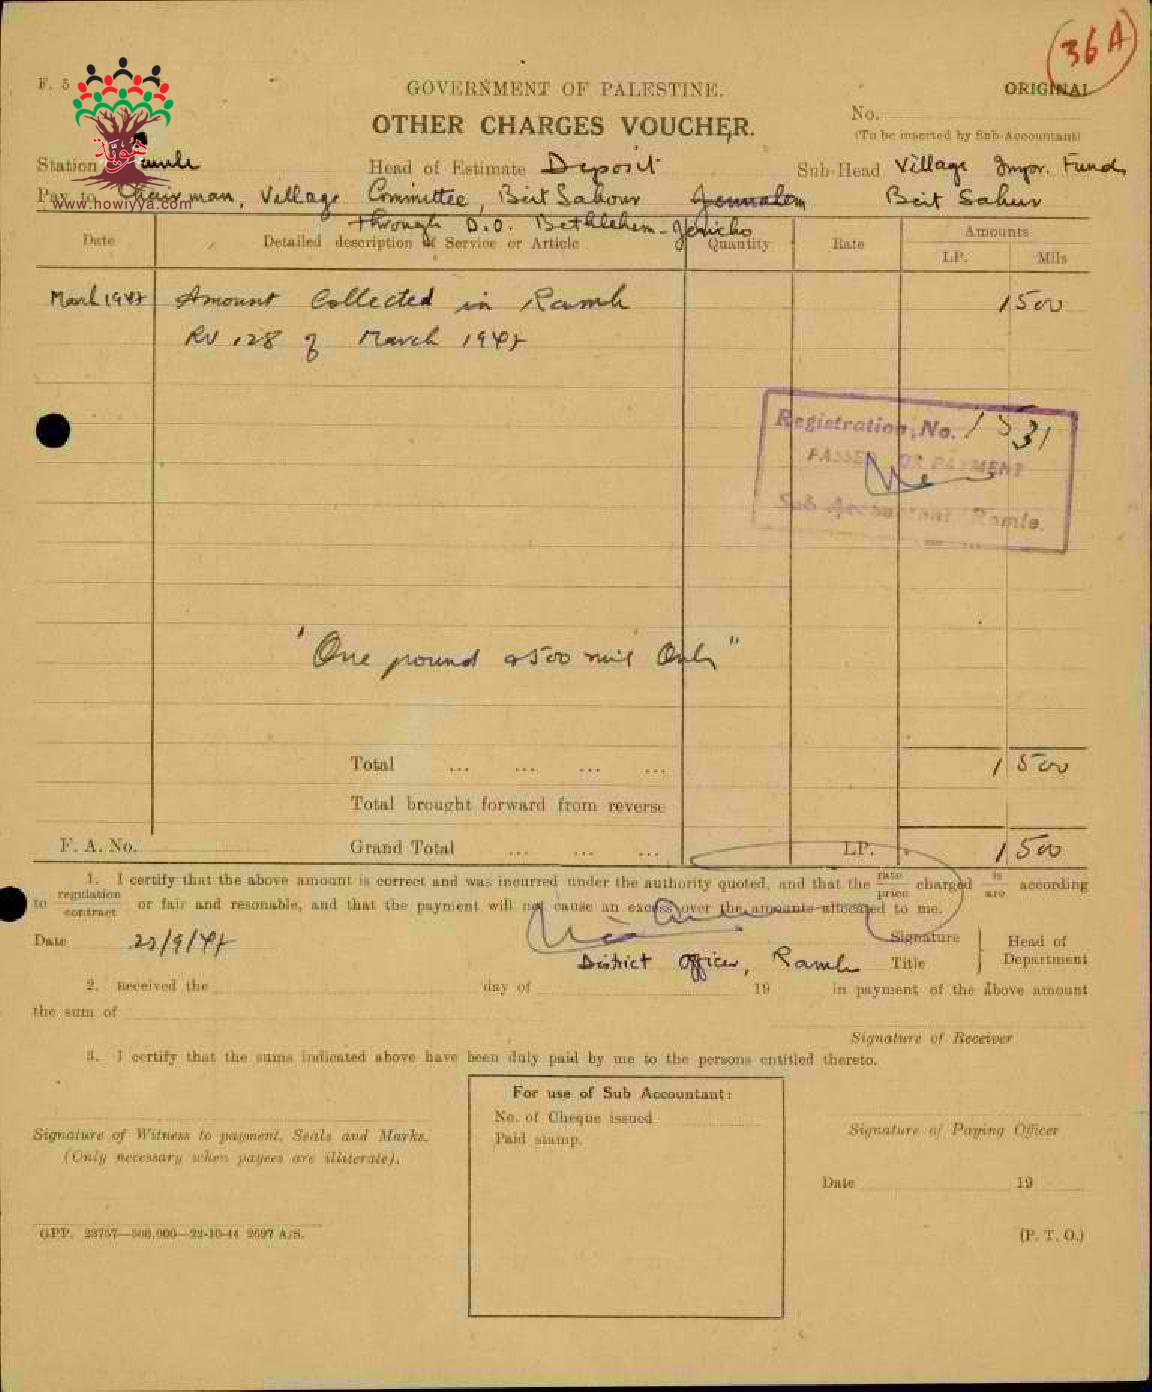 36A
F. 5
GOVERNMENT OF PALESTINE.
ORIGINAL
OTHER CHARGES VOUCHER.
No.
(To be inserted by Sub-Accountant)
Station Ramle
Head of Estimate Deposit
Sub-Head Village Impr. Fund
Pay to Chairman, Village Committee, Beit Sahour Jerusalem Beit Sahur
www.howiyya.com
through D.O. Bethlehem-Jericho
Date Detailed description of Service or Article Quantity Rate Amounts
LP. Mils
March 1947 Amount Collected in Ramle 1 500
RV 128 of March 1947
Registration No. 1531
PASSED FOR PAYMENT
Sub Accountant Ramle.
"One pound & 500 mils Only"
Total ... ... ... ... 1 500
Total brought forward from reverse
F. A. No. Grand Total ... ... ... LP. 1 500
1. I certify that the above amount is correct and was incurred under the authority quoted, and that the rate/price charged is/are according
to regulation/contract or fair and resonable, and that the payment will not cause an excess over the amounts allocated to me.
Date /9/47
Signature
District Officer, Ramle Title
Head of Department
2. Received the day of 19 in payment of the above amount
the sum of
Signature of Receiver
3. I certify that the sums indicated above have been duly paid by me to the persons entitled thereto.
For use of Sub Accountant:
No. of Cheque issued
Paid stamp.
Signature of Witness to payment, Seals and Marks.
(Only necessary when payees are illiterate).
Signature of Paying Officer
Date 19
GPP. 23757—500.000—22-10-44 2697 A/S.
(P. T. O.)